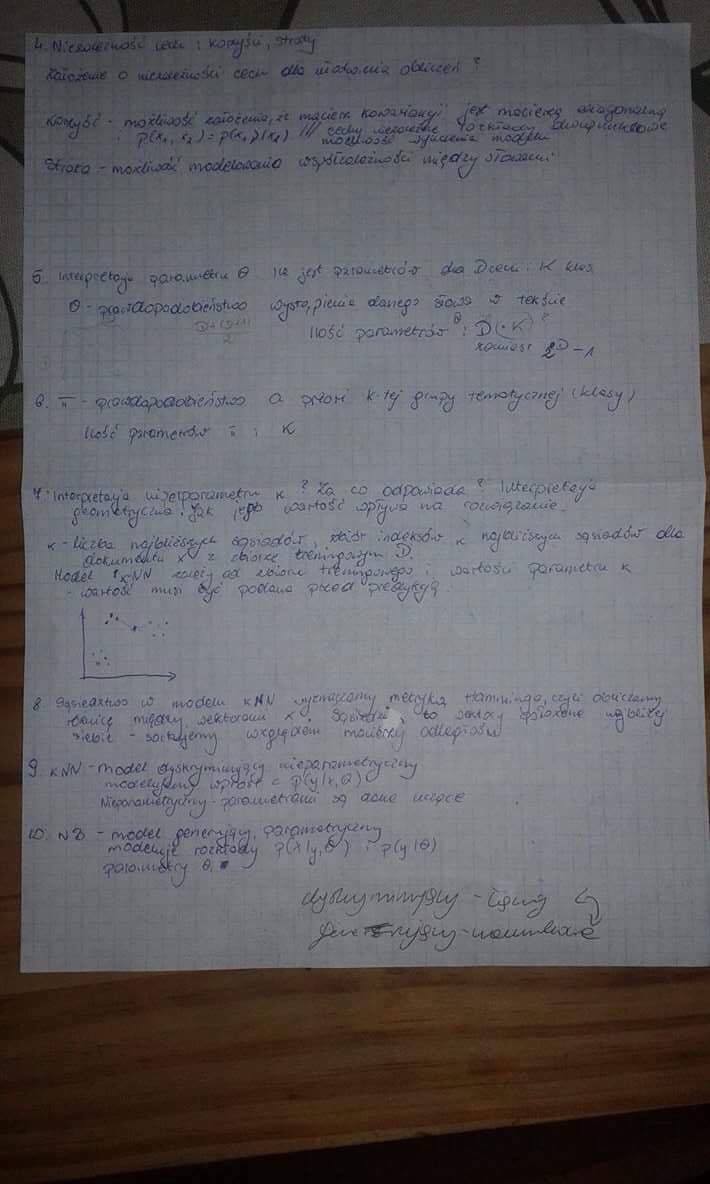 4. Niezależność cech : korzyści, straty
Założenie o niezależności cech dla ułatwienia obliczeń?
Korzyść - możliwość założenia, że macierz kowariancji jest macierzą diagonalną
i p(x₁, x₂) = p(x₁)p(x₂) /// cechy niezależne rozkłady dwupunktowe
możliwość modelu
Strata - możliwość modelowania współzależności między słowami
5. Interpretacja parametru θ Ile jest parametrów dla D cech i K klas
θ - prawdopodobieństwo wystąpienia danego słowa w tekście
Ilość parametrów θ : D(·K)?
zamiast 2^D-1
6. π - prawdopodobieństwo a priori k-tej grupy tematycznej (klasy)
Ilość parametrów π : K
7. Interpretacja hiperparametru k? Za co odpowiada? Interpretacja
geometryczna. Jak jego wartość wpływa na rozwiązanie.
k - liczba najbliższych sąsiadów, zbiór indeksów k najbliższych sąsiadów dla
dokumentu x z zbioru treningowym D.
Model kNN zależy od zbioru treningowego i wartości parametru k
- wartość musi być podana przed predykcją.
8. Sąsiedztwo w modelu kNN wyznaczamy metryką Hamminga, czyli obliczamy
różnicę między wektorami x. Sąsiedzi to wektory położone najbliżej
siebie - sortujemy względem macierzy odległości
9. kNN - model dyskryminujący nieparametryczny
modelujemy wprost p(y|x,θ)
Nieparametryczny - parametrami są dane uczące
10. NB - model generujący, parametryczny
modeluje rozkłady p(x|y,θ) i p(y|θ)
parametry θ,
dyskryminujący -
generujący -